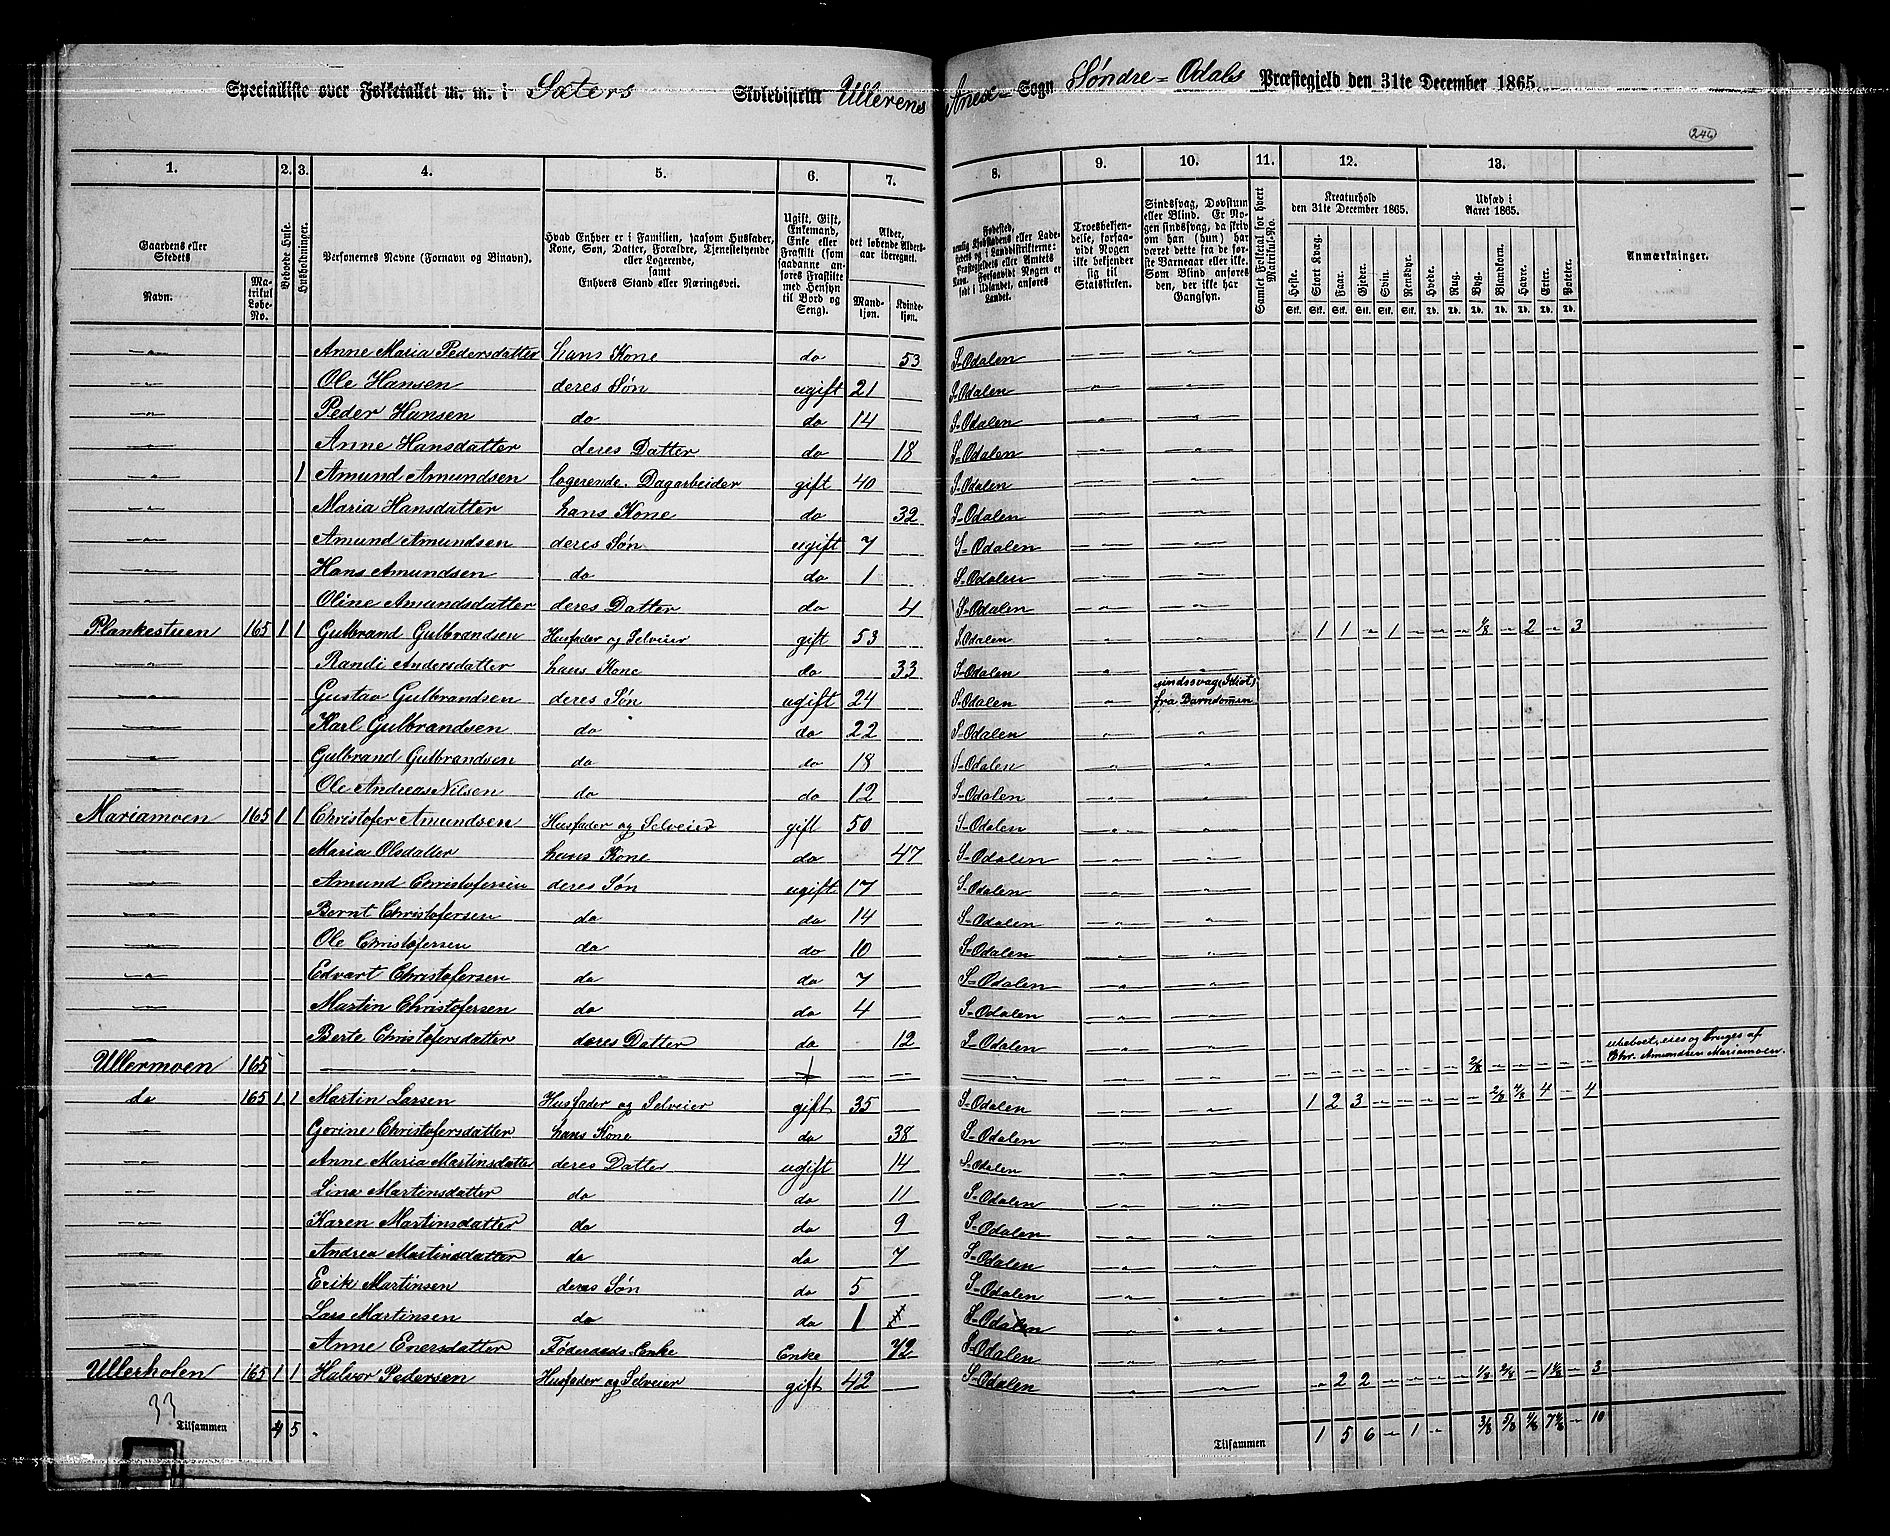 Specialliste over Folketallet m. m. i Sæters Skoledistrikt Ullerens Annex Sogn Søndre-Odals Præstegjeld den 31te December 1865.
246
1. 2. 3. 4. 5. 6. 7. 8. 9. 10. 11. 12. 13.
Gaardens eller Stedets Navn. Matrikul Løbe-No. Beboede Huse. Husholdninger.
Personernes Navne (Fornavn og Binavn).
Hvad Enhver er i Familien, saasom Husfader, Kone, Søn, Datter, Forældre, Tjenestetyende eller Logerende, samt Enhvers Stand eller Næringsvei.
Ugift, Gift, Enkemand, Enke eller Fraskilt (som saadanne anføres Fraskilte med Hensyn til Bord og Seng).
Alder, det løbende Alders-aar iberegnet. Mand-kjøn. Kvinde-kjøn.
Troesbekjendelse, forsaavidt Nogen ikke bekjender sig til Statskirken.
Sindssvag, Døvstum eller Blind. Er Nogen sindssvag, da skrives om han (hun) har været dette fra de første Barneaar eller ikke. Som Blind anføres den, der ikke har Gangsyn.
Samlet Folketal for hvert Matrikul-No.
Kreaturhold den 31te December 1865. Heste. Stort Kvæg. Faar. Gjeder. Svin. Rensdyr.
Udsæd i Aaret 1865. Hvede. Rug. Byg. Blandkorn. Havre. Erter. Poteter.
Anmærkninger.
Anne Maria Pedersdatter hans Kone do 53 S-Odalen
Ole Hansen deres Søn ugift 21 S-Odalen
Peder Hansen do do 14 S-Odalen
Anne Hansdatter deres Datter do 18 S-Odalen
1 Amund Amundsen logerende. Dagarbeider gift 40 S-Odalen
Maria Hansdatter hans Kone do 32 S-Odalen
Amund Amundsen deres Søn ugift 7 S-Odalen
Hans Amundsen do do 1 S-Odalen
Oline Amundsdatter deres Datter do 4 S-Odalen
Plankestuen 165 1 1 Gulbrand Gulbrandsen Husfader og Selveier gift 53 S-Odalen 1 1 - 1 - - - 1/8 - 2 - 3
Randi Andersdatter hans Kone do 33 S-Odalen
Gustav Gulbrandsen deres Søn ugift 24 S-Odalen sindssvag (Idiot) fra Barndommen
Karl Gulbrandsen do do 22 S-Odalen
Gulbrand Gulbrandsen do do 18 S-Odalen
Ole Andreas Nilsen do do 12 S-Odalen
Mariamoen 165 1 1 Christofer Amundsen Husfader og Selveier gift 50 S-Odalen
Maria Olsdatter hans Kone do 47 S-Odalen
Amund Christofersen deres Søn ugift 17 S-Odalen
Bernt Christofersen do do 14 S-Odalen
Ole Christofersen do do 10 S-Odalen
Edvart Christofersen do do 7 S-Odalen
Martin Christofersen do do 4 S-Odalen
Berte Christofersdatter deres Datter do 12 S-Odalen
Ullermoen 165 2/8 ubeboet, eies og bruges af Chr. Amundsen Mariamoen.
do 165 1 1 Martin Larsen Husfader og Selveier gift 35 S-Odalen 1 2 3 - - - - - 2/8 4/8 4 - 4
Gorine Christofersdatter hans Kone do 38 S-Odalen
Anne Maria Martinsdatter deres Datter ugift 14 S-Odalen
Lina Martinsdatter do do 11 S-Odalen
Karen Martinsdatter do do 9 S-Odalen
Andrea Martinsdatter do do 7 S-Odalen
Erik Martinsen deres Søn do 5 S-Odalen
Lars Martinsen do do 1 S-Odalen
Anne Enersdatter Føderaads-Enke Enke 72 S-Odalen
Ullerholen 165 1 1 Halvor Pedersen Husfader og Selveier gift 42 S-Odalen - 2 2 - - - - 1/8 2/8 - 1 4/8 - 3
33
Tilsammen 4 5 Tilsammen 1 5 6 - 1 - 3/8 5/8 4/8 7 4/8 - 10